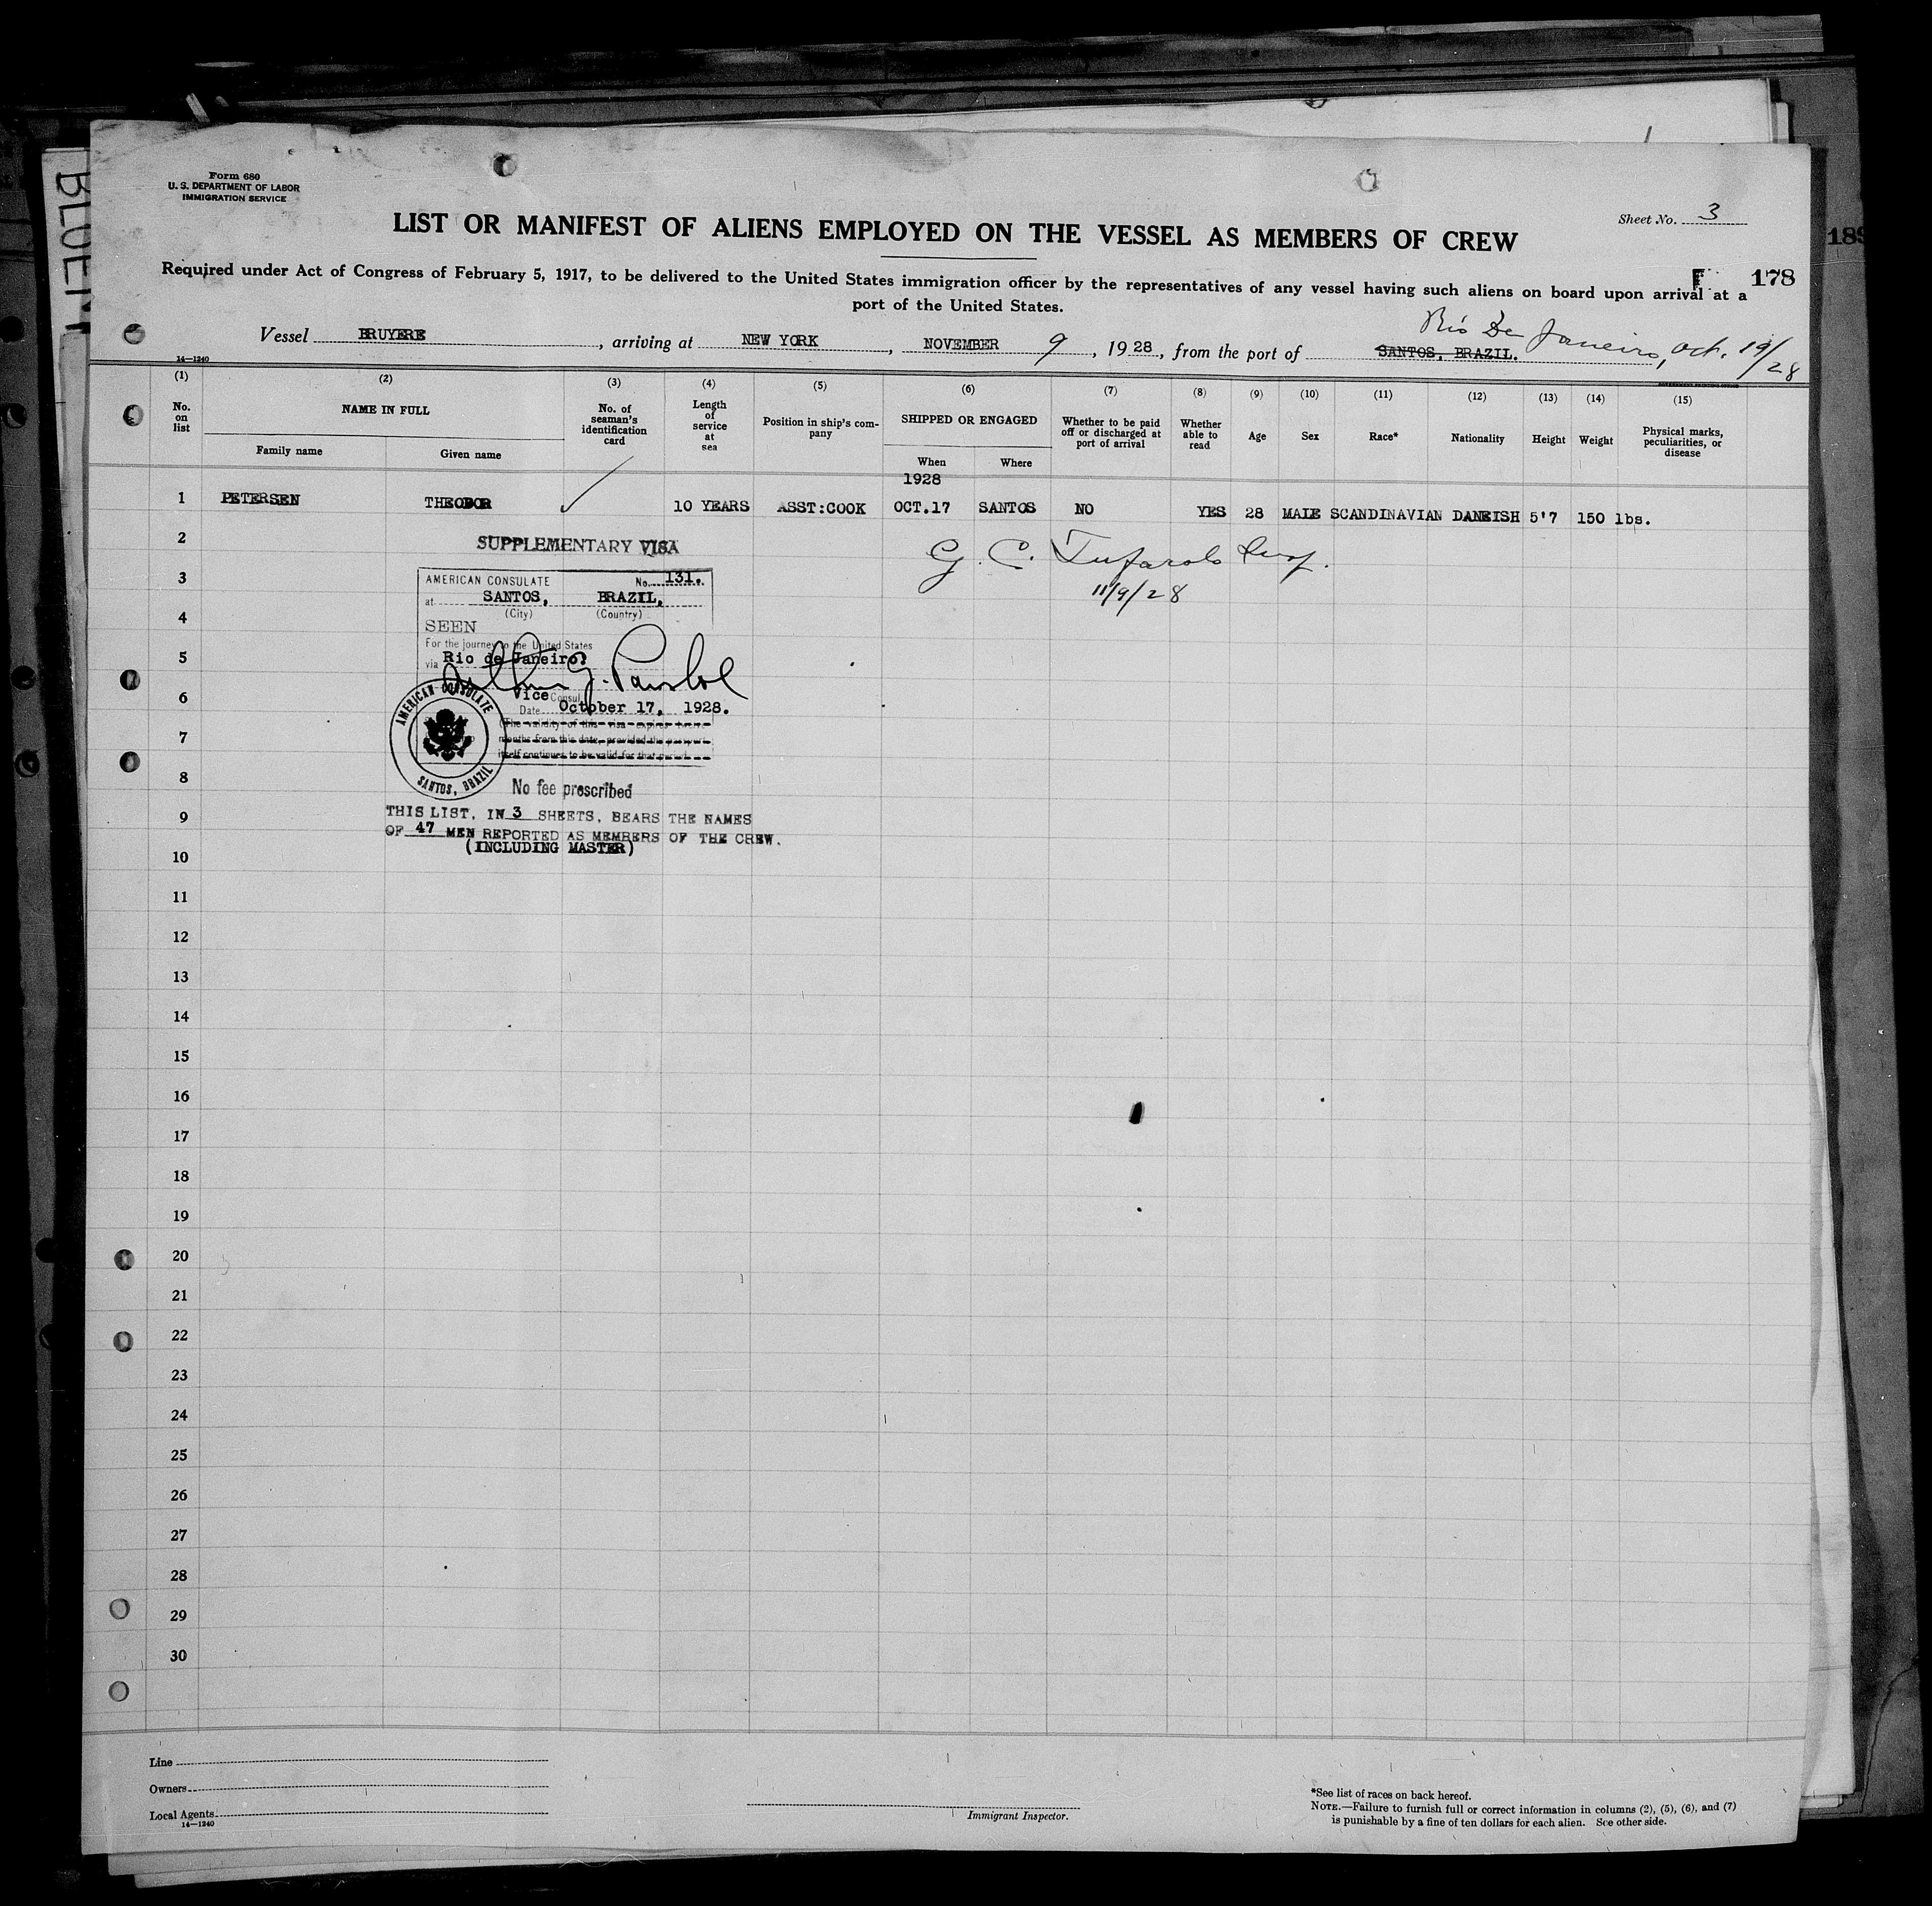 BLUEM
Form 680
U. S. DEPARTMENT OF LABOR
IMMIGRATION SERVICE
Sheet No. 3
LIST OR MANIFEST OF ALIENS EMPLOYED ON THE VESSEL AS MEMBERS OF CREW
189
F 178
Required under Act of Congress of February 5, 1917, to be delivered to the United States immigration officer by the representatives of any vessel having such aliens on board upon arrival at a
port of the United States.
Rio De Janeiro, Oct. 19/28
Vessel BRUYERE, arriving at NEW YORK, NOVEMBER 9, 1928, from the port of SANTOS, BRAZIL.
14—1240
(1) (2) (3) (4) (5) (6) (7) (8) (9) (10) (11) (12) (13) (14) (15)
No. on list
NAME IN FULL
Family name Given name
No. of seaman's identification card
Length of service at sea
Position in ship's company
SHIPPED OR ENGAGED
When Where
Whether to be paid off or discharged at port of arrival
Whether able to read
Age Sex Race* Nationality Height Weight
Physical marks, peculiarities, or disease
1928
1 PETERSEN THEODOR 10 YEARS ASST:COOK OCT.17 SANTOS NO YES 28 MALE SCANDINAVIAN DANEISH 5'7 150 lbs.
2
SUPPLEMENTARY VISA
G. C. Insp.
11/9/28
3
AMERICAN CONSULATE No. 131.
at SANTOS, BRAZIL,
(City) (Country)
4
SEEN
For the journey to the United States
5
via Rio de Janeiro.
6
Vice Consul
Date October 17, 1928.
7
(The validity of this visa expires twelve
months from this date, provided the passport
itself continues to be valid for that period.
AMERICAN CONSULATE
SANTOS, BRAZIL
8
No fee prescribed
9
THIS LIST, IN 3 SHEETS, BEARS THE NAMES
OF 47 MEN REPORTED AS MEMBERS OF THE CREW.
(INCLUDING MASTER)
10
11
12
13
14
15
16
17
18
19
20
21
22
23
24
25
26
27
28
29
30
Line
Owners
Local Agents
14—1240
Immigrant Inspector.
*See list of races on back hereof.
NOTE.—Failure to furnish full or correct information in columns (2), (5), (6), and (7)
is punishable by a fine of ten dollars for each alien. See other side.